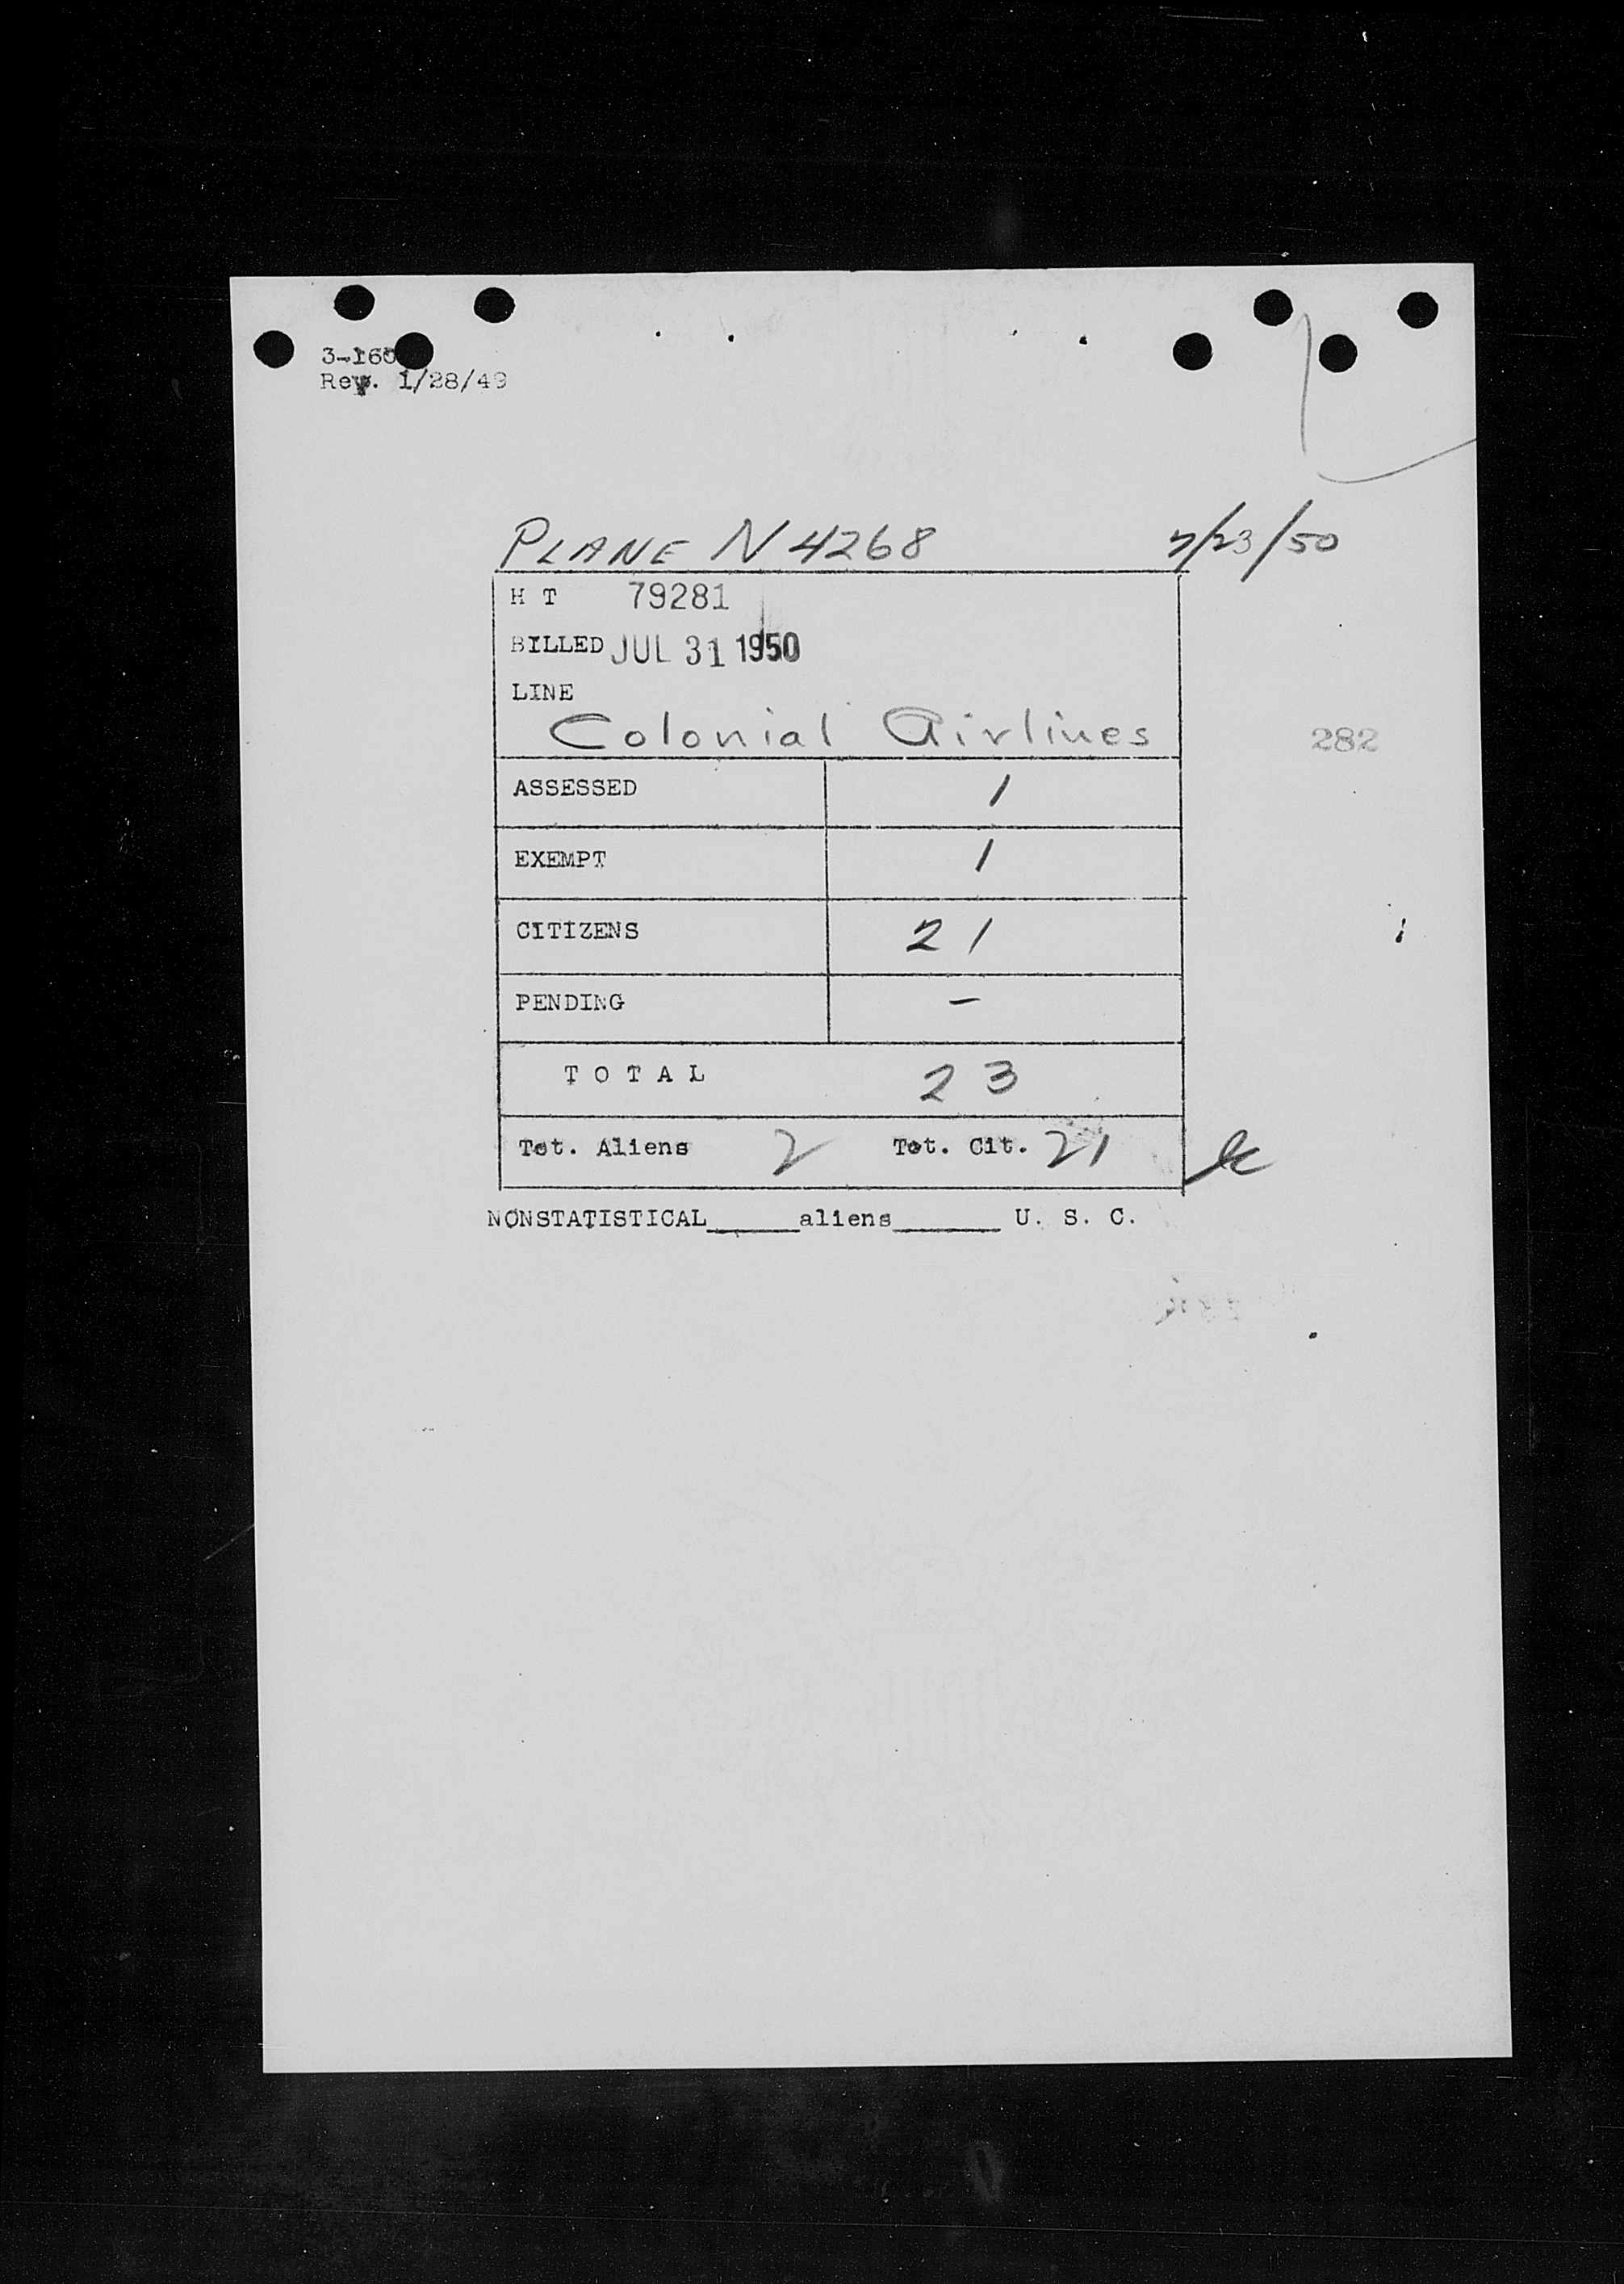 3-160
Rev. 1/28/49
PLANE N 4268 7/23/50
H T 79281
BILLED JUL 31 1950
LINE
Colonial Airlines
282
ASSESSED 1
EXEMPT 1
CITIZENS 21
PENDING –
TOTAL 23
Tot. Aliens 2 Tot. Cit. 21
NONSTATISTICAL______aliens_______ U. S. C.